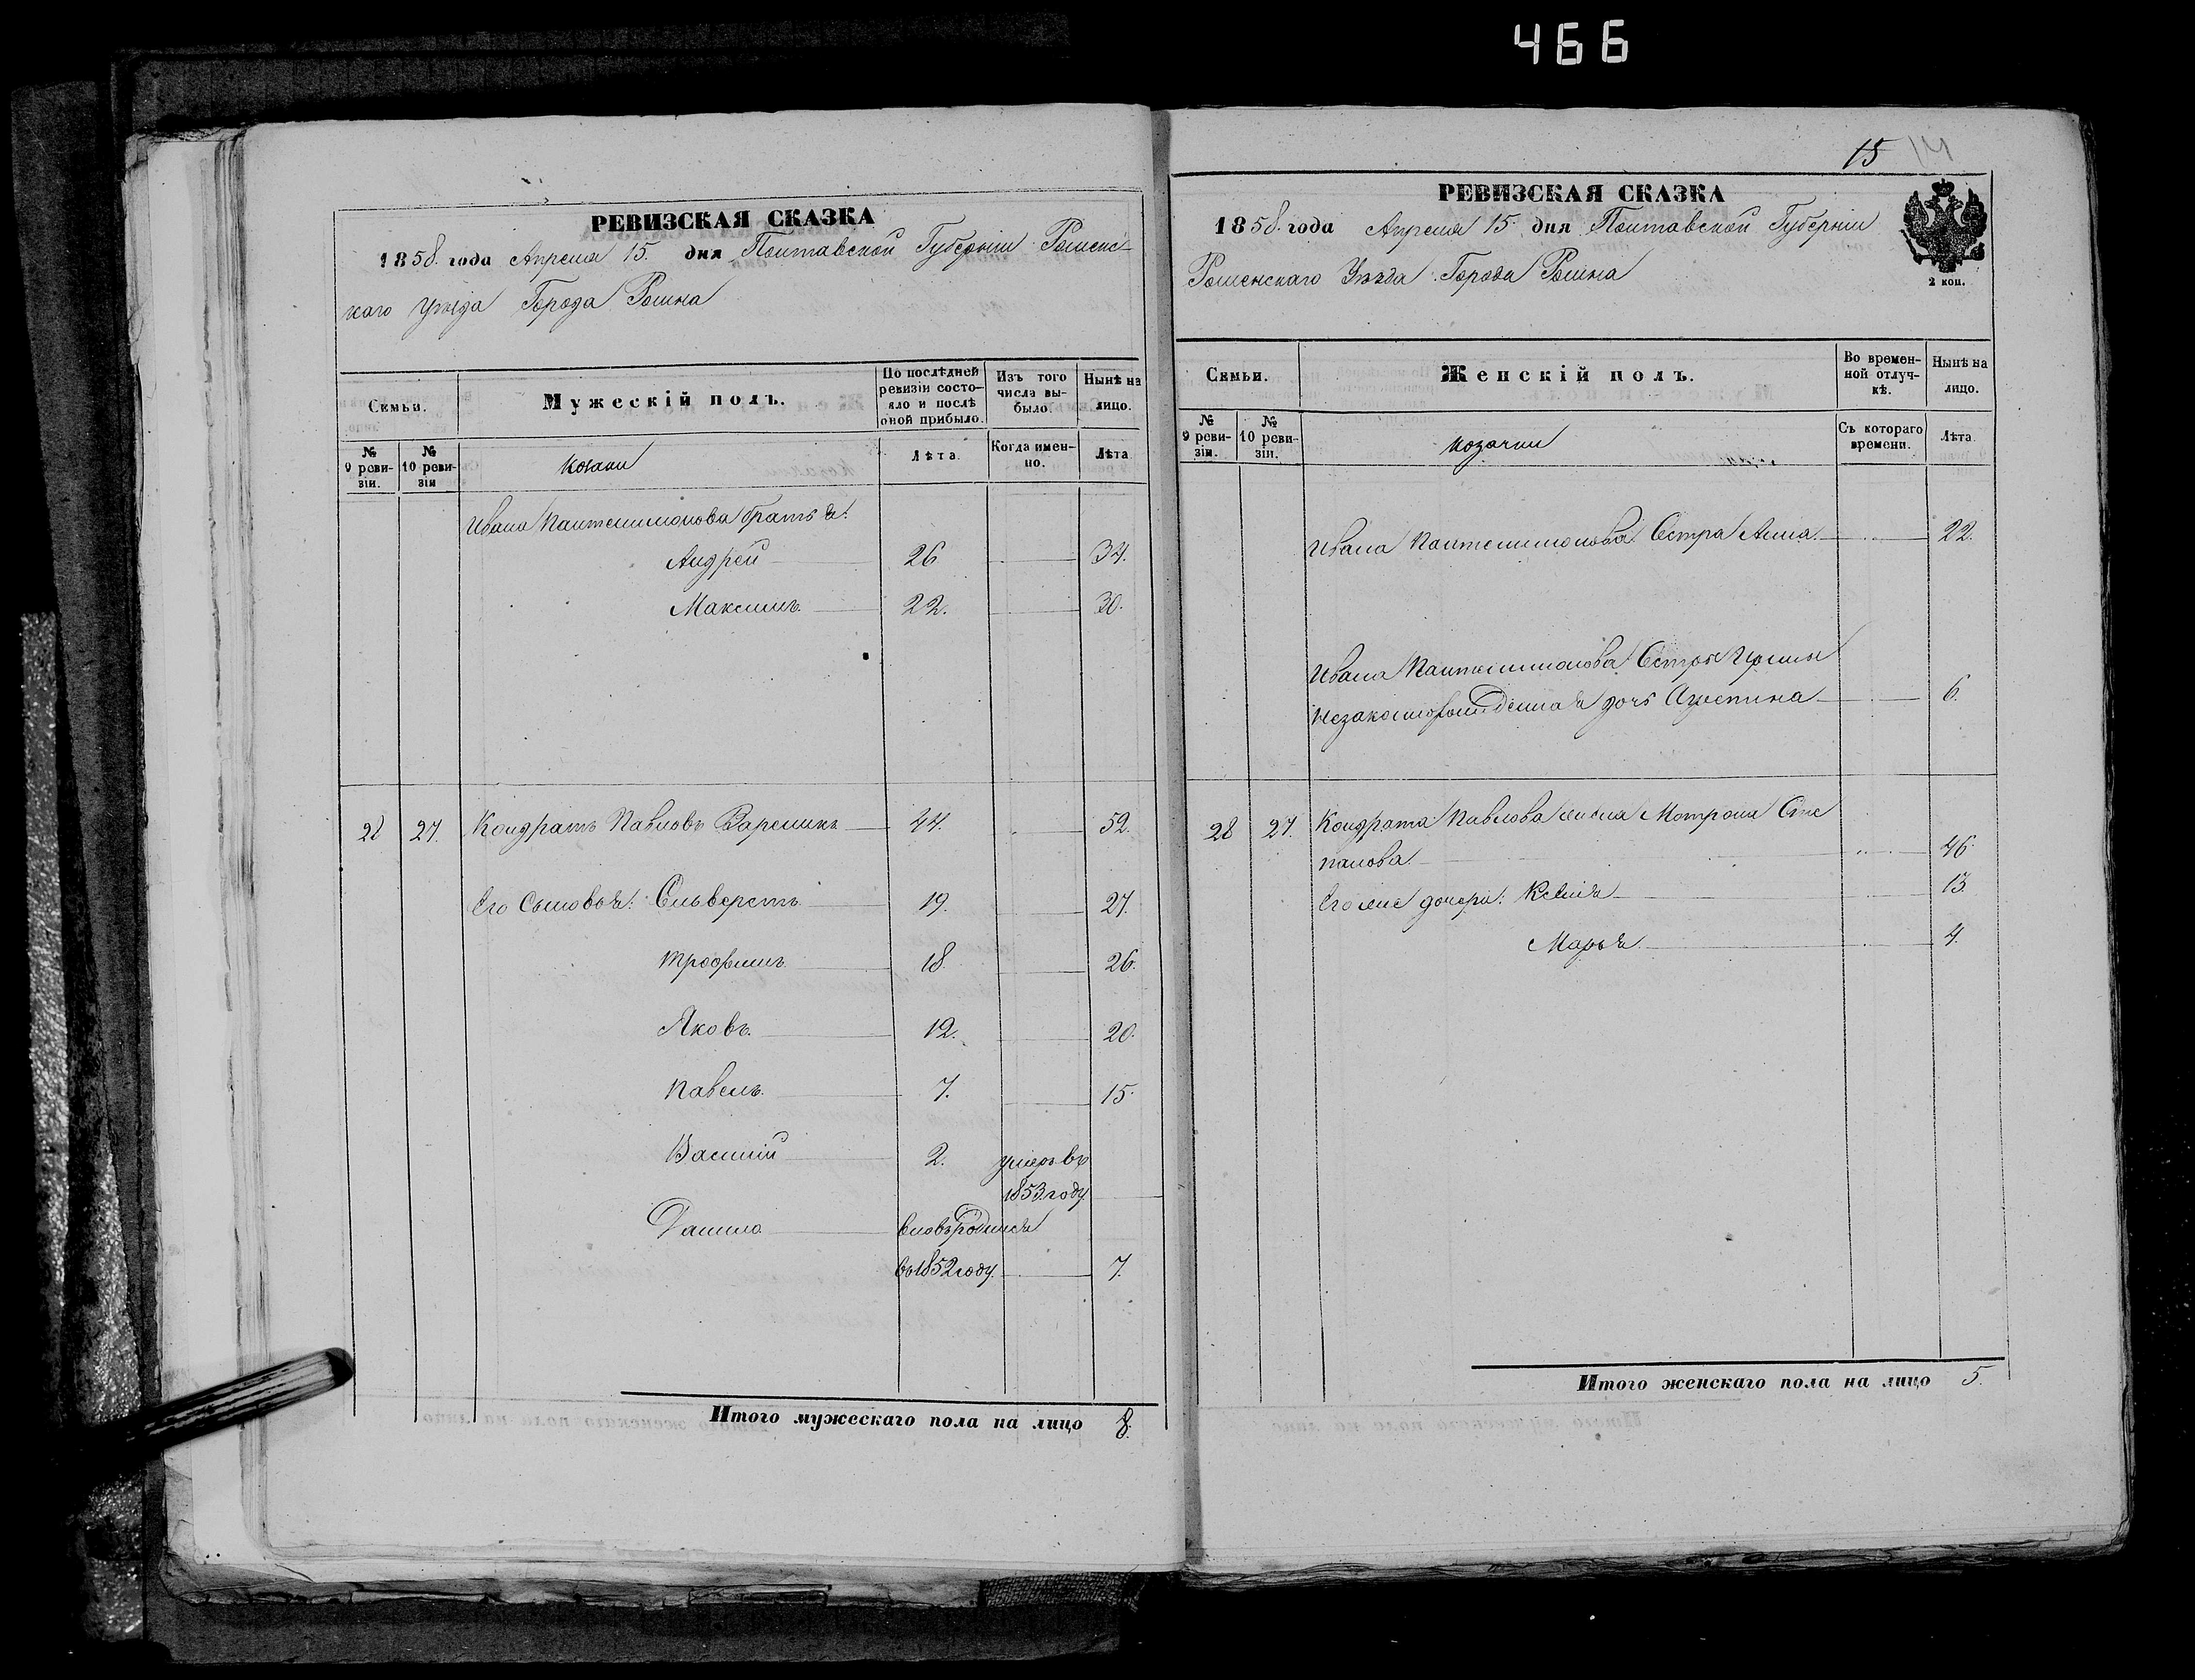 466
РЕВИЗСКАЯ СКАЗКА
1858. года Апреля 15. дня Полтавской Губерніи Роменс-
каго уѣзда Города Ромна
Семьи.
Мужескій полъ.
По послѣдней ревизіи состо-яло и послѣ оной прибыло.
Изъ того числа вы-было.
Нынѣ на лицо.
№ 9 реви-зіи.
№ 10 реви-зіи
козаки
Лѣта.
Когда имен-но.
Лѣта
Ивана Пантелимонова братья:
Андрей 26 34.
Максимъ 22. 30.
28 27. Кондратъ Павловъ 44. 52.
Его Сыновья: Сильверстъ 19. 27.
Трофимъ 18. 26.
Яковъ. 12. 20.
Павелъ. 7. 15.
Василій 2. умеръ въ
1853. году.
Данило вновь родился
въ 1852 году. 7.
Итого мужескаго пола на лицо 8.
15 14
РЕВИЗСКАЯ СКАЗКА
1858. года Апреля 15. дня Полтавской Губерніи
Роменскаго Уѣзда Города Ромна
2 коп.
Семьи.
Женскій полъ.
Во времен-ной отлуч-кѣ.
Нынѣ на лицо.
№ 9 реви-зіи.
№ 10 реви-зіи.
козачки
Съ котораго времени.
Лѣта.
Ивана Пантелимонова Сестра Анна 22.
Ивана Пантелимонова Сестры Ирины
незаконнорожденная дочь Агрепина 6.
28 27. Кондрата Павлова жена Мотрона Сте
панова 46
Его же дочери: Ксенія 13
Марья 4.
Итого женскаго пола на лицо 5.